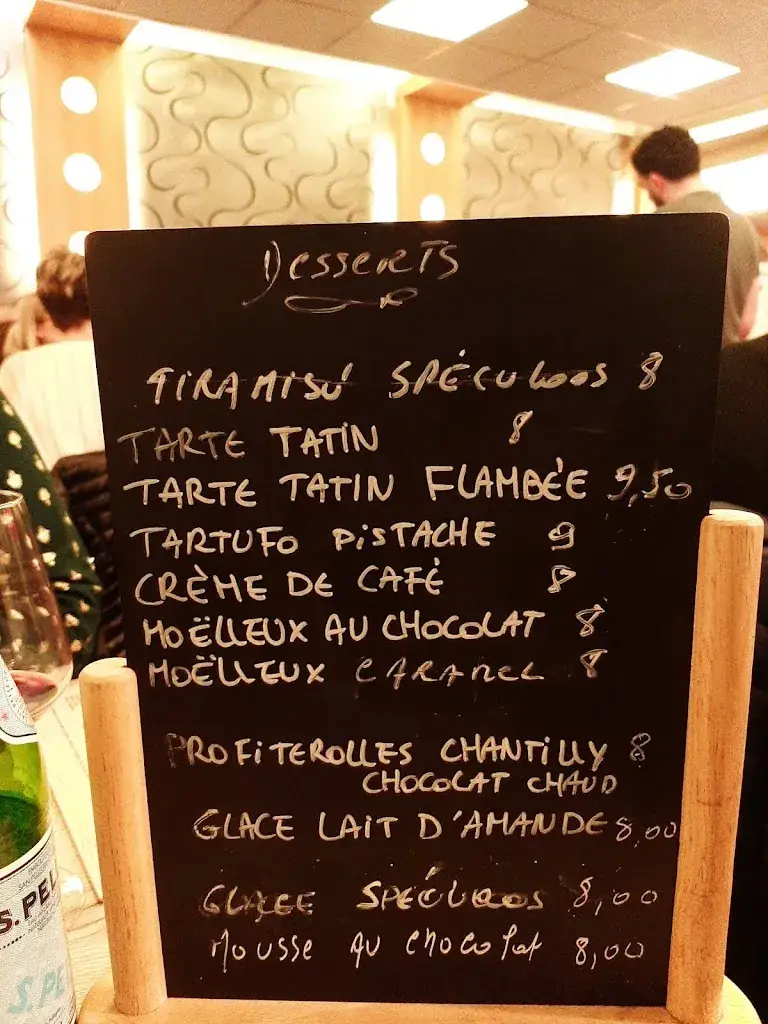 Desserts
TIRAMISU SPÉCULOOS 8
TARTE TATIN 8
TARTE TATIN FLAMBÉE 9,50
TARTUFO PISTACHE 9
CRÈME DE CAFÉ 8
MOËLLEUX AU CHOCOLAT 8
MOËLLEUX CARAMEL 8
PROFITEROLLES CHANTILLY 8
CHOCOLAT CHAUD
GLACE LAIT D'AMANDE 8,00
GLACE SPÉCULOOS 8,00
MOUSSE AU CHOCOLAT 8,00
S. PEL
S. PE